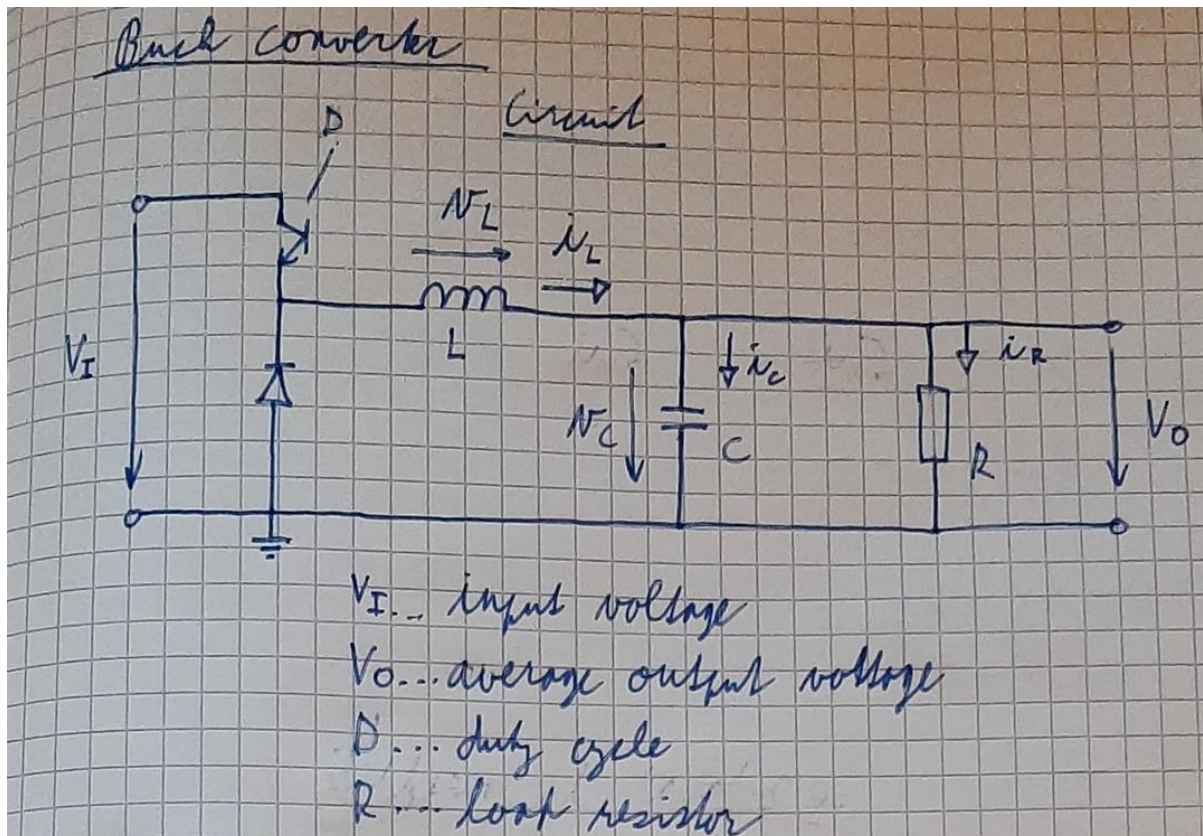 Buck converter
Circuit
D
v_L
i_L
V_I
L
i_C
i_R
v_C
C
R
V_O
V_I... input voltage
V_O... average output voltage
D... duty cycle
R.... load resistor